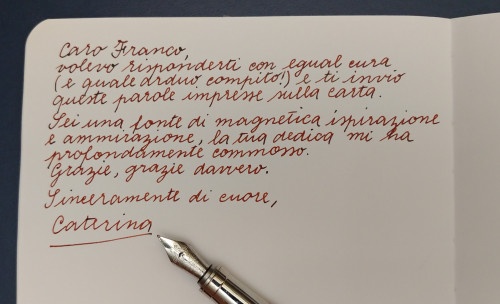 Caro Franco,
volevo risponderti con egual cura
(e quale arduo compito!) e ti invio
queste parole impresse sulla carta.
Sei una fonte di magnetica ispirazione
e ammirazione, la tua dedica mi ha
profondamente commosso.
Grazie, grazie davvero.
Sinceramente di cuore,
Caterina